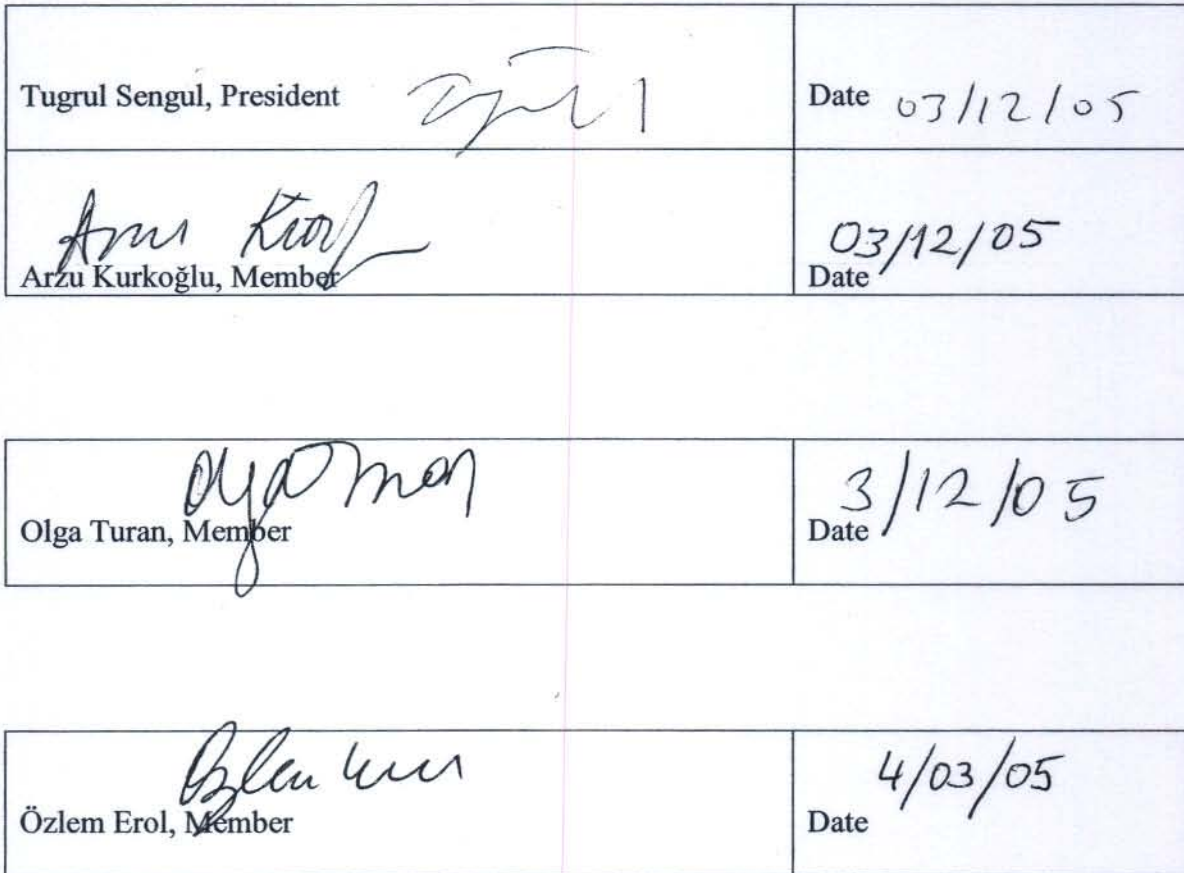 Tugrul Sengul, President Date 03/12/05
03/12/05
Arzu Kurkoğlu, Member Date
3/12/05
Olga Turan, Member Date
4/03/05
Özlem Erol, Member Date